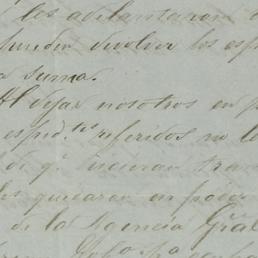 les adelantaron
pueden devolver los esp
a suma.
Al dejar nosotros en p
esped.tes referidos no l
de q.e hicieran tra
los quedaran en poder
de la Agencia Gral